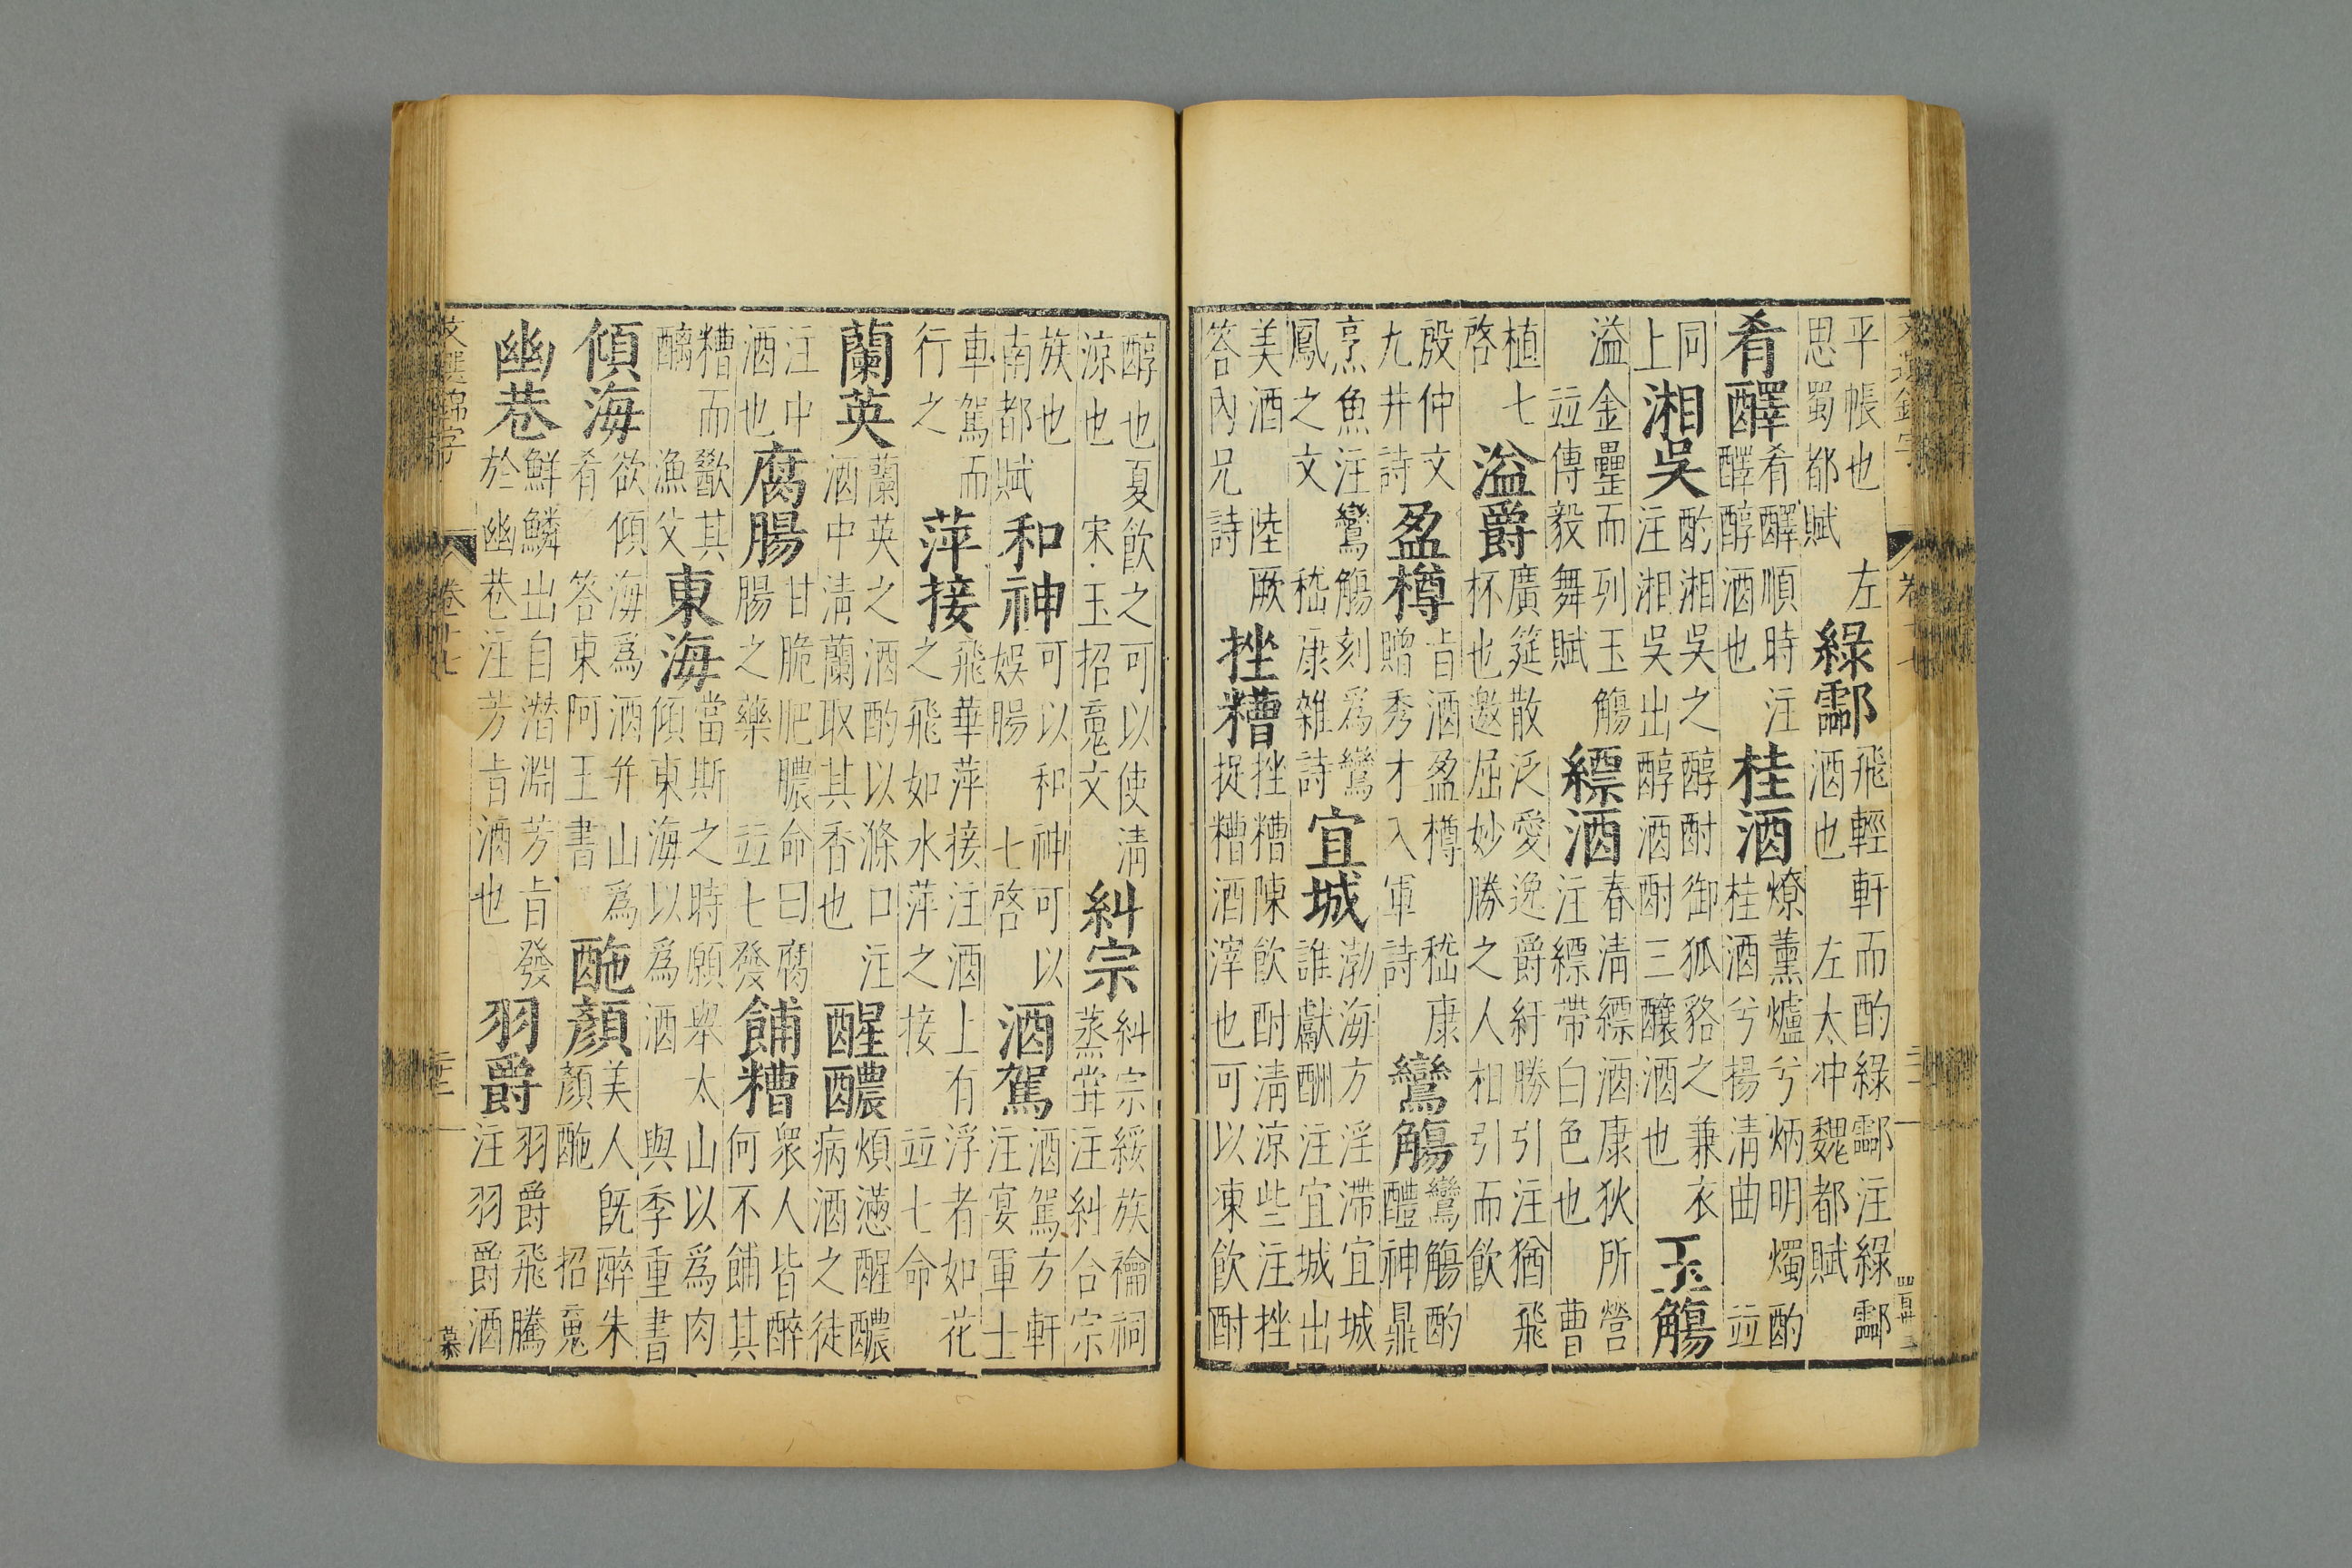 平帳也　左思蜀都賦　綠酃　飛輕軒而酌綠酃注綠酃酒也　左太冲魏都賦
肴醳　肴醳順時注醳醇酒也　桂酒　燎薰爐兮炳明燭酌桂酒兮揚清曲　竝
同上　湘吳　酌湘吳之醇酎御狐貉之兼衣注湘吳出醇酒酎三釀酒也　玉觴
溢金罍而列玉觴　竝傳毅舞賦　縹酒　春清縹酒康狄所營注縹帶白色也　曹
植七啓　溢爵　廣筵散泛愛逸爵紆勝引注猶飛杯也邀屈妙勝之人相引而飲
殷仲文九井詩　盈樽　旨酒盈樽　嵇康贈秀才入軍詩　鸞觴　鸞觴酌醴神鼎
烹魚注鸞觴刻爲鸞鳳之文　嵇康雜詩　宜城　渤海方淫滯宜城誰獻酬注宜城出
美酒　陸厥答內兄詩　挫糟　挫糟陳飲酎清涼些注挫捉糟酒滓也可以凍飲酎
醇也夏飲之可以使清涼也　宋玉招䰟文　糾宗　糾宗綏族禴祠蒸甞注糾合宗
族也　南都賦　和神　可以和神可以娛腸　七啓　酒駕　酒駕方軒注宴軍士
車駕而行之　萍接　飛華萍接注酒上有浮者如花之飛如水萍之接　竝七命
蘭英　蘭英之酒酌以滌口注酒中清蘭取其香也　醒醲　煩懣醒醲病酒之徒
注中酒也　腐腸　甘脆肥膿命曰腐腸之藥　竝七發　餔糟　衆人皆醉何不餔其
糟而歠其醨　漁父　東海　當斯之時願舉太山以爲肉傾東海以爲酒　與季重書
傾海　欲傾海爲酒并山爲肴　答東阿王書　酏顏　美人既醉朱顏酏　招䰟
幽巷　鮮鱗出自潛淵芳旨發於幽巷注芳旨酒也　羽爵　羽爵飛騰注羽爵酒
文選錦字　卷十七